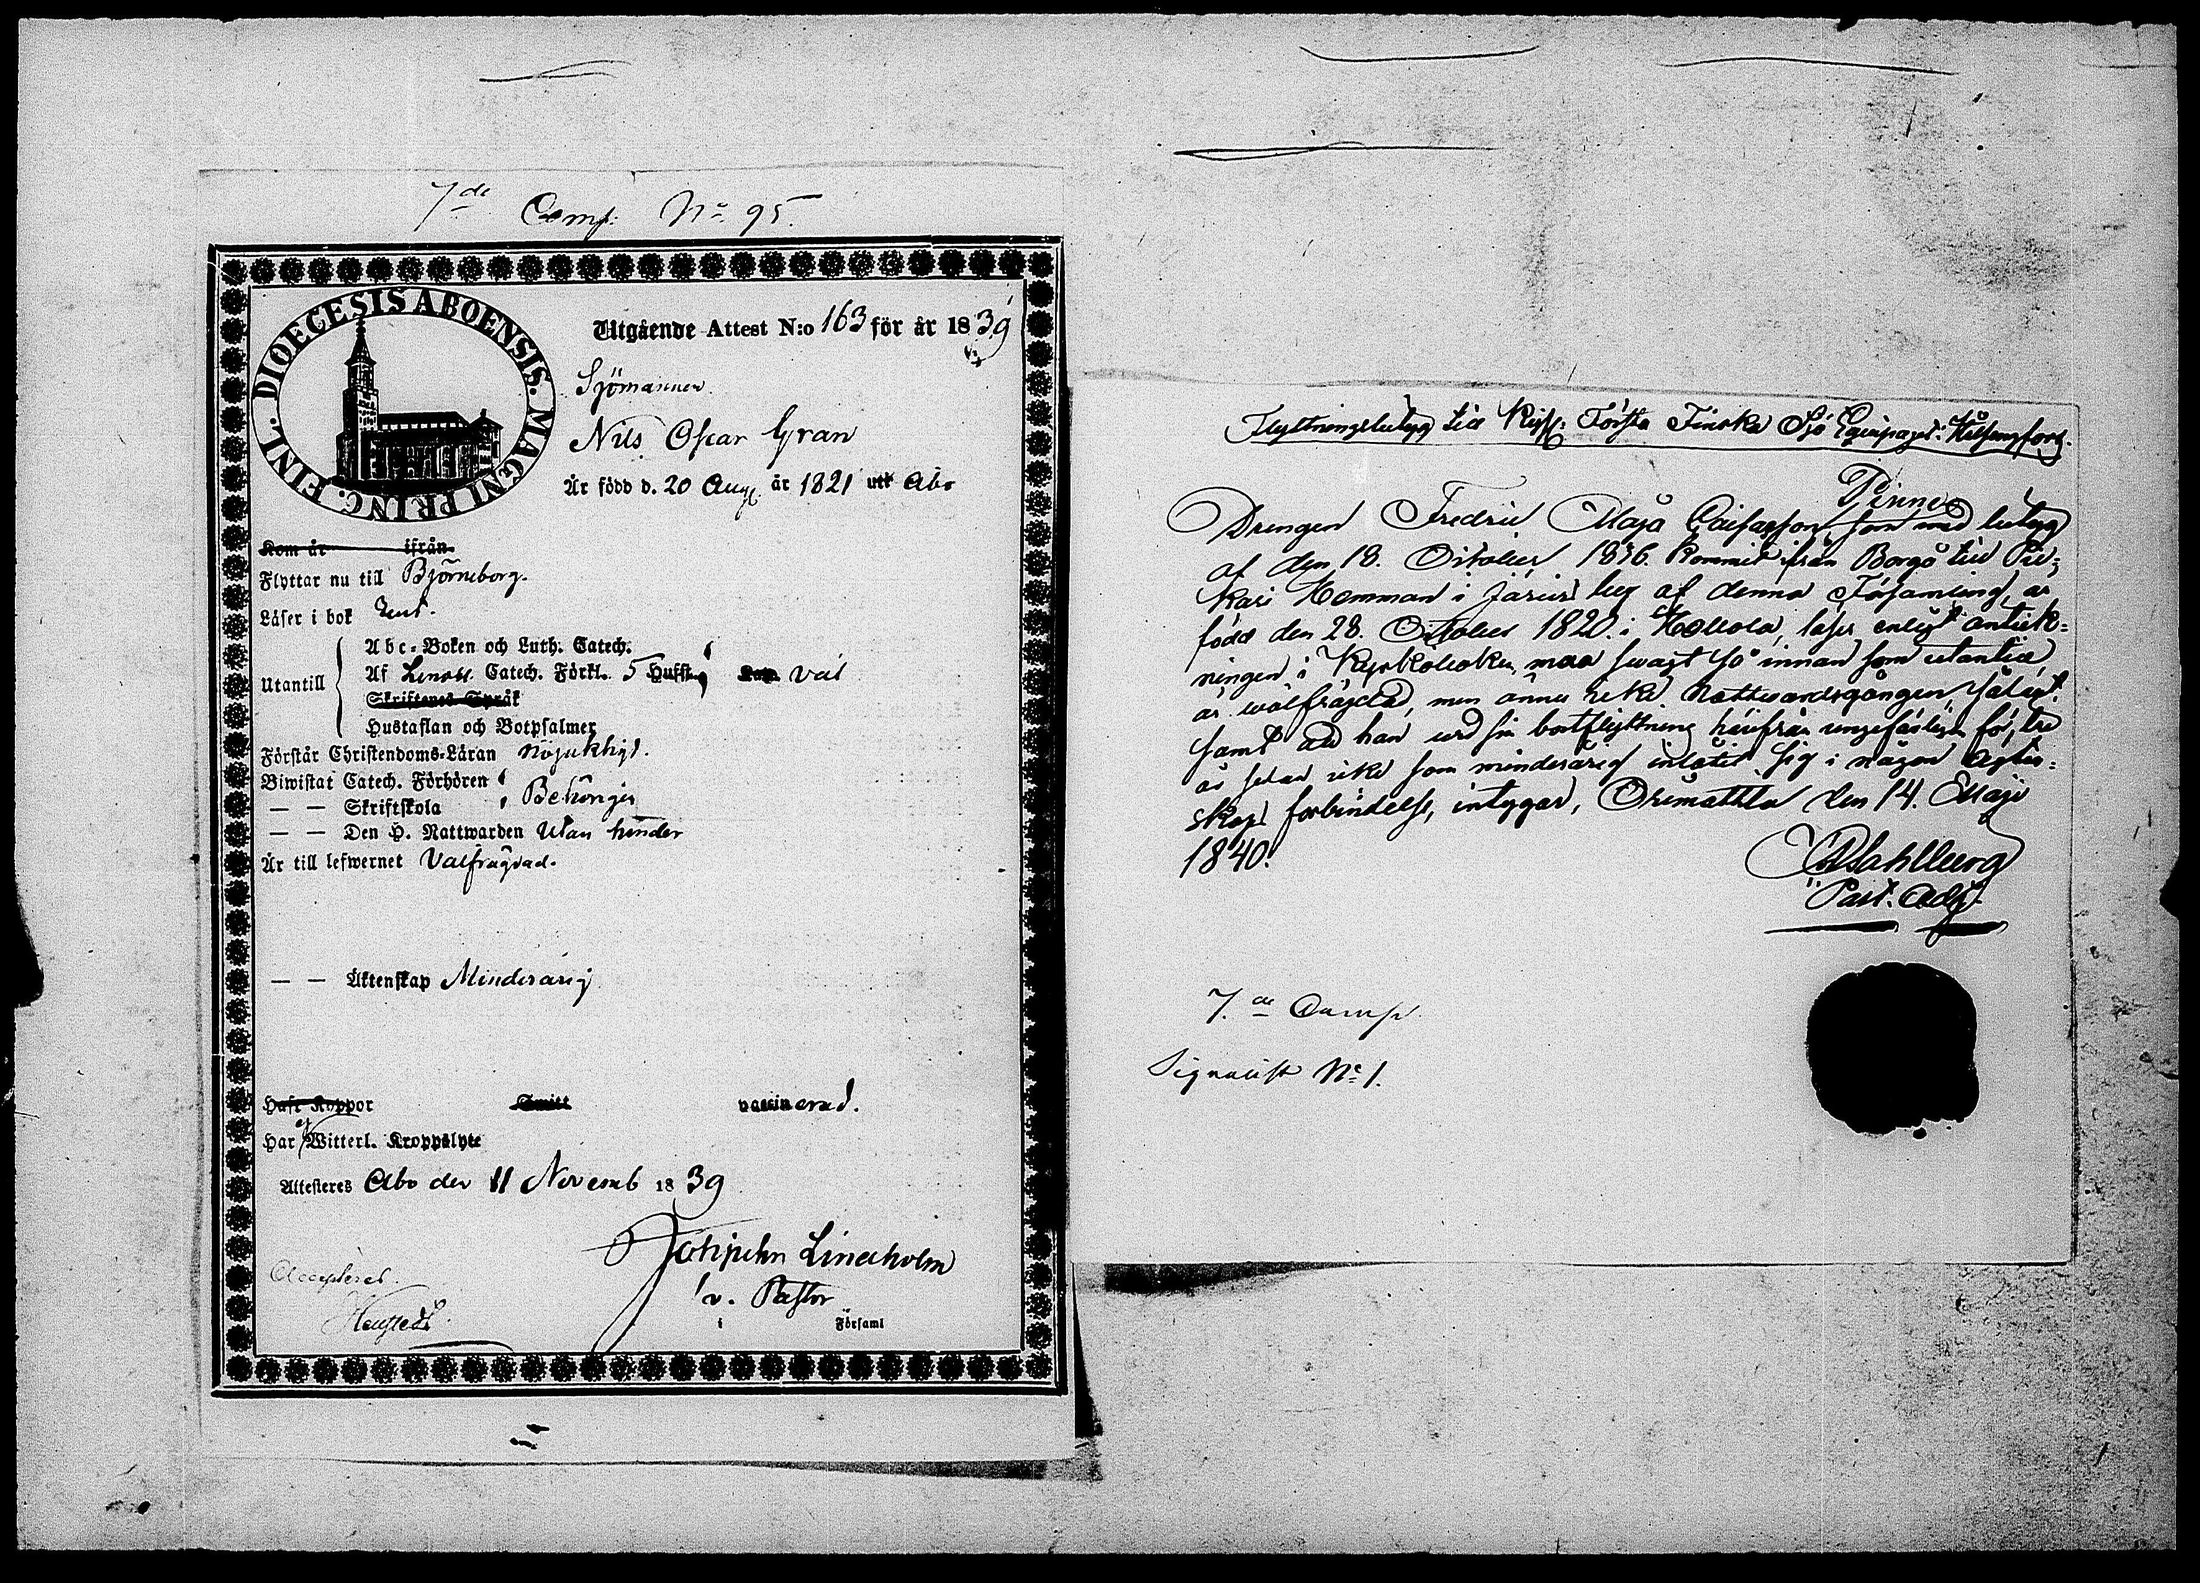 7de Comp: No 95.
DIOECESIS ABOENSIS. MAGNI PRINC. FINL.
Utgående Attest N:o 163 för år 1839
Sjömannen
Nils Oscar Gran
Är född d. 20 Aug. år 1821 uti Åbo
Kom år ifrån
Flyttar nu till Björneborg.
Läser i bok
Utantill
Abc-Boken och Luth. Catech.
Af Catech. Förkl. 5 Hufst. väl
Skriftenes Språk
Hustaflan och Botpsalmer
Förstår Christendoms-Läran Nöjaktigt.
Biwistat Catech. Förhören
— — Skriftskola Behörigen
— — Den H. Nattwarden Utan hinder
Är till lefwernet Välfrägdad.
— — Äktenskap Minderårig
Haft Koppor vaccinerad.
Har ej Witterl. Kroppslyte
Attesteras Åbo den 11 Novemb 1839
Lindholm
v. Pastor
i Församl
Accepteras.
Flyttningsbetyg till Första Finska Sjö Equipaget i Helsingfors.
Pinne
Drengen Fredric som med betyg
af den 18. October 1836 kommit ifrån Borgå till Pie-
kari Hemman i by af denna Församling, är
född den 28. October 1820 i Hollola, läser enligt anteck-
ningen i Kyrkoboken, svagt så innan som utantill
är wälfrägdad, men ännu icke Nattvardsgången
samt att han wid sin bortflyttning härifrån ungefärligen för tre
år sedan icke som minderårig inlåtit sig i någon Ägten-
skaps förbindelse, intygar, Orimattila den 14. Maji
1840.
Past. Adj.
7.de Comp
Signalist No 1.